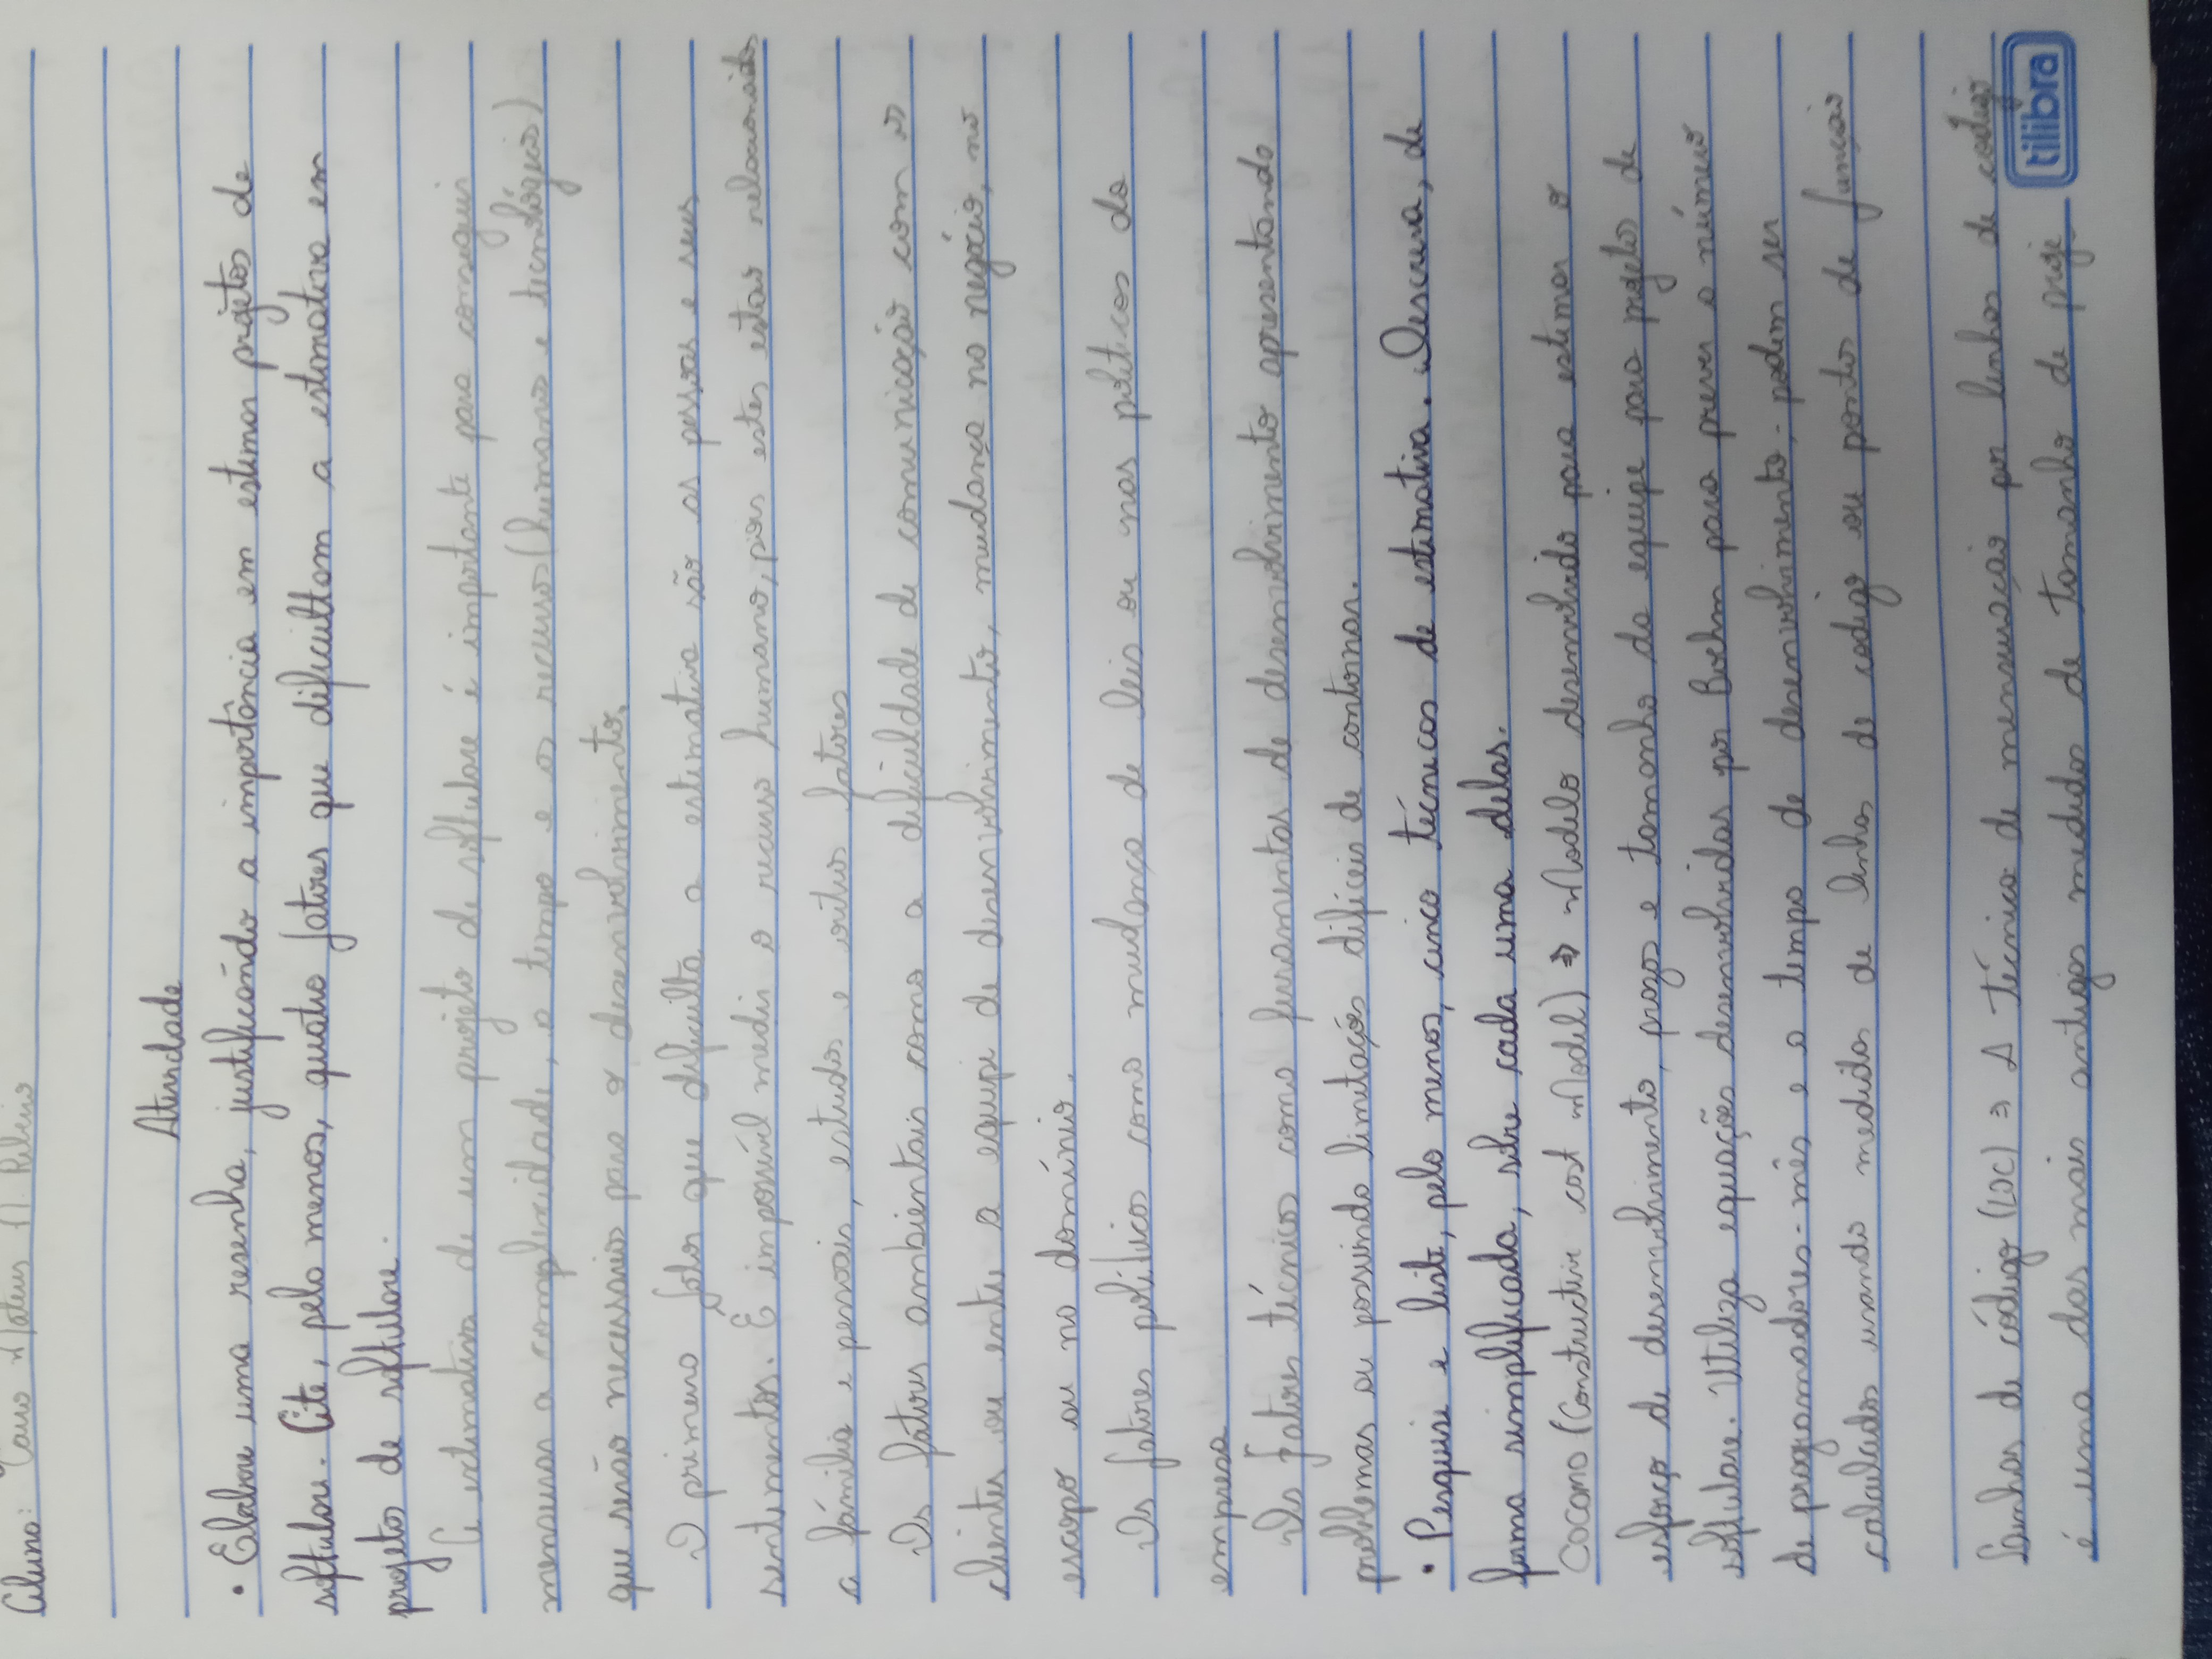 Aluno: Caio Mateus
Atividade
• Elabore uma resenha, justificando a importância em estimar projetos de
software. Cite, pelo menos, quatro fatores que dificultam a estimativa em
projeto de software.
A estimativa de um projeto de software é importante para conseguir
mensurar a complexidade, o tempo e os recursos (humanos e tecnológicos)
que serão necessários para o desenvolvimento.
O primeiro fator que dificulta a estimativa são as pessoas e seus
sentimentos. É impossível medir o recurso humano, pois estes estão relacionados
a família e pessoais, estudos e outros fatores
Os fatores ambientais como a dificuldade de comunicação com os
clientes ou entre a equipe de desenvolvimento, mudança no negócio, no
escopo ou no domínio.
Os fatores políticos como mudança de leis ou nas políticas da
empresa
Os fatores técnicos como ferramentas de desenvolvimento apresentando
problemas ou possuindo limitações difíceis de contornar.
• Pesquise e liste, pelo menos, cinco técnicas de estimativa. Descreva, de
forma simplificada, sobre cada uma delas.
COCOMO (Constructive cost Model) ⇒ Modelo desenvolvido para estimar o
esforço de desenvolvimento, prazo e tamanho da equipe para projeto de
software. Utiliza equações desenvolvidas por Boehm para prever o número
de programadores-mês e o tempo de desenvolvimento,- podem ser
calculados usando medidas de linhas de codigo ou pontos de função
Linhas de código (LOC) ⇒ A técnica de mensuração por linhas de código
é uma das mais antigas medidas de tamanho de proje
tilibra